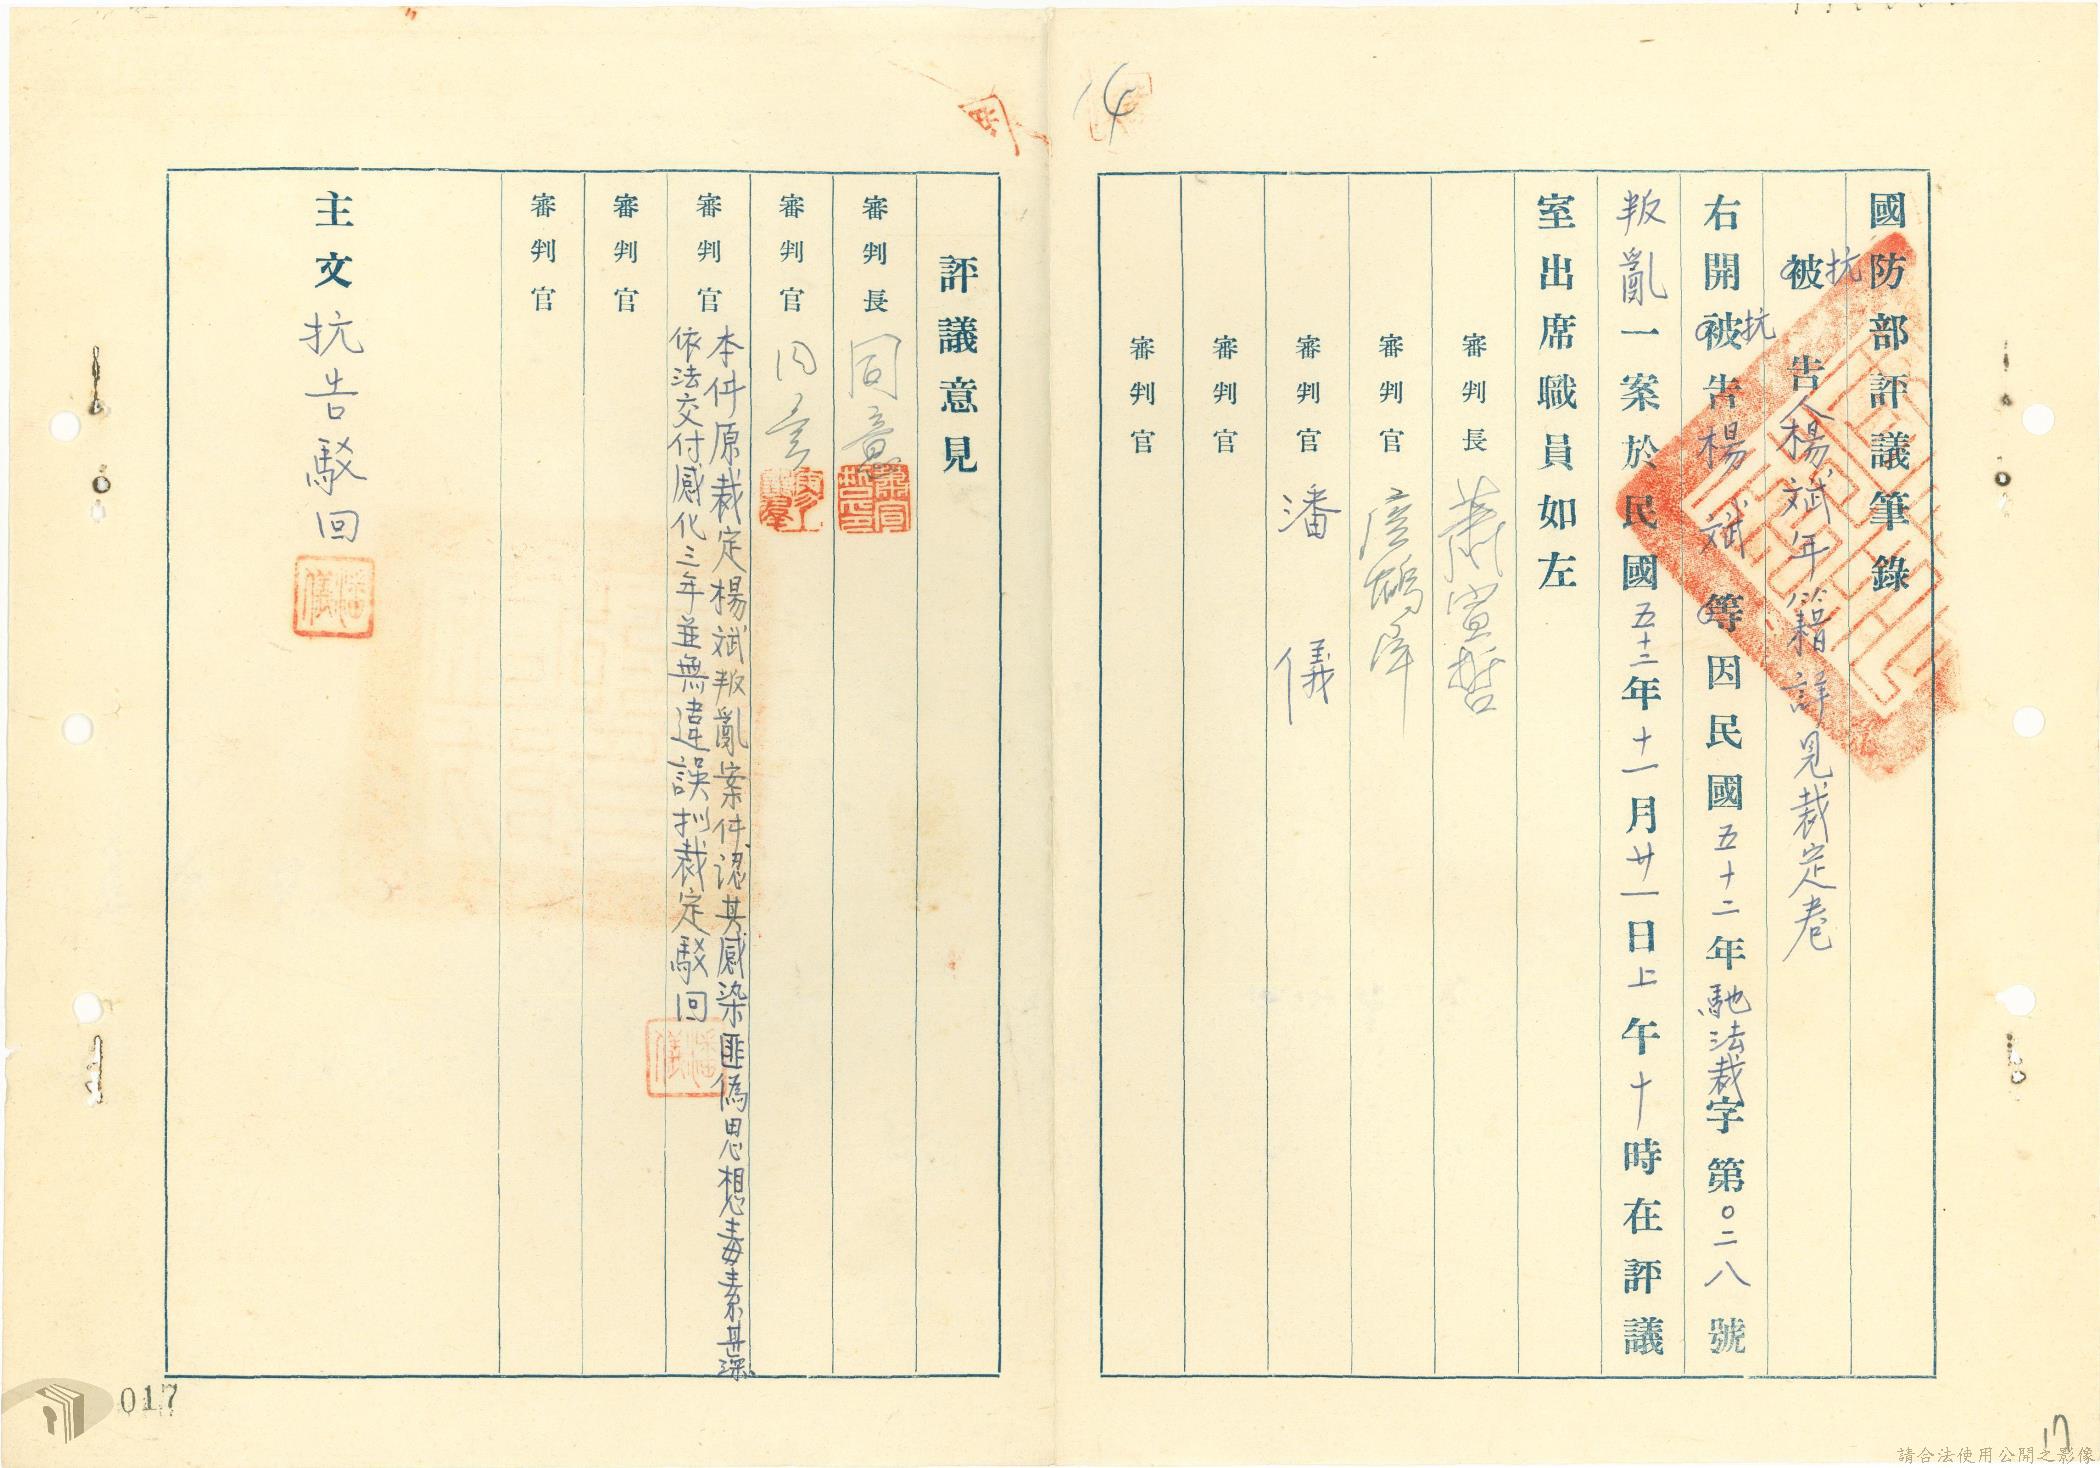 14
國防部評議筆錄
抗告人楊斌年籍詳見裁定卷
右開抗告楊斌因民國五十二年馳法裁字第〇二八號
叛亂一案於民國五十二年十一月廿一日上午十時在評議
室出席職員如左
審判長 蕭宣哲
審判官
審判官 潘儀
審判官
審判官
評議意見
審判長 同意
審判官 同意
審判官 本件原裁定楊斌叛亂案件認其感染匪偽思想毒素甚深
依法交付感化三年並無違誤擬裁定駁回
審判官
審判官
主文 抗告駁回
潘儀
潘儀
017
17
請合法使用公開之影像